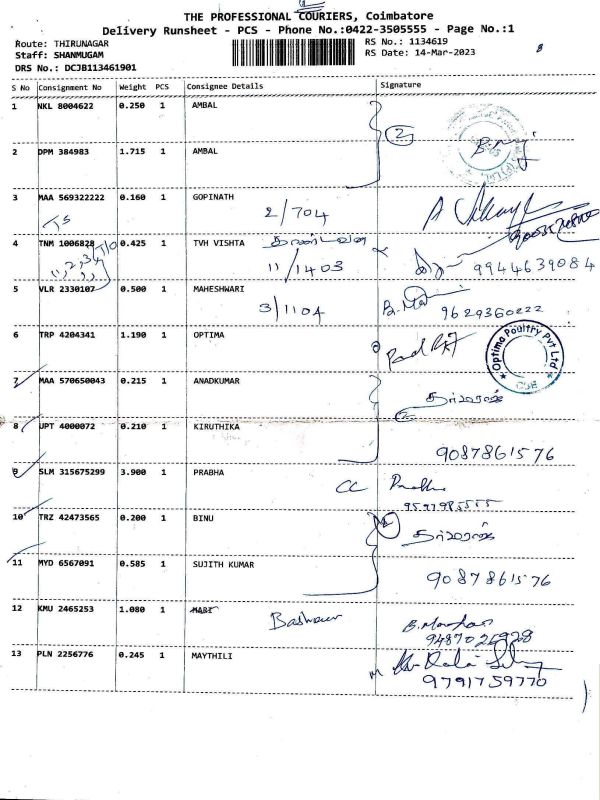 THE PROFESSIONAL COURIERS, Coimbatore
Delivery Runsheet - PCS - Phone No.:0422-3505555 - Page No.:1
Route: THIRUNAGAR
Staff: SHANMUGAM
DRS No.: DCJB113461901
RS No.: 1134619
RS Date: 14-Mar-2023
8
S No Consignment No Weight PCS Consignee Details Signature
1 NKL 8004622 0.250 1 AMBAL
2
2 DPM 384983 1.715 1 AMBAL
3 MAA 569322222 0.160 1 GOPINATH
2/704
TS
4 TNM 1006828 0.425 1 TVH VISHTA
T/O
1,2,3,4
11/1403
9944639084
5 VLR 2330107 0.500 1 MAHESHWARI
3/1104
9629360222
6 TRP 4204341 1.190 1 OPTIMA
Optima Poultry Pvt Ltd
CBE
7 MAA 570650043 0.215 1 ANADKUMAR
2
8 UPT 4000072 0.210 1 KIRUTHIKA
9087861576
9 SLM 315675299 3.900 1 PRABHA
CC Prabha
10 TRZ 42473565 0.200 1 BINU
11 MYD 6567091 0.585 1 SUJITH KUMAR
9087861576
12 KMU 2465253 1.080 1 MARI
9487026928
13 PLN 2256776 0.245 1 MAYTHILI
9791759770